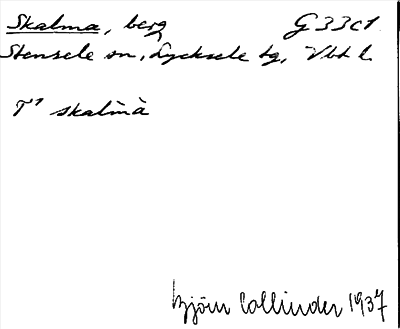 Skalma, berg G 33 c 1
Stensele sn, Lycksele tg, Vbt l.
T¹ skalm̄à
Björn Collinder 1937